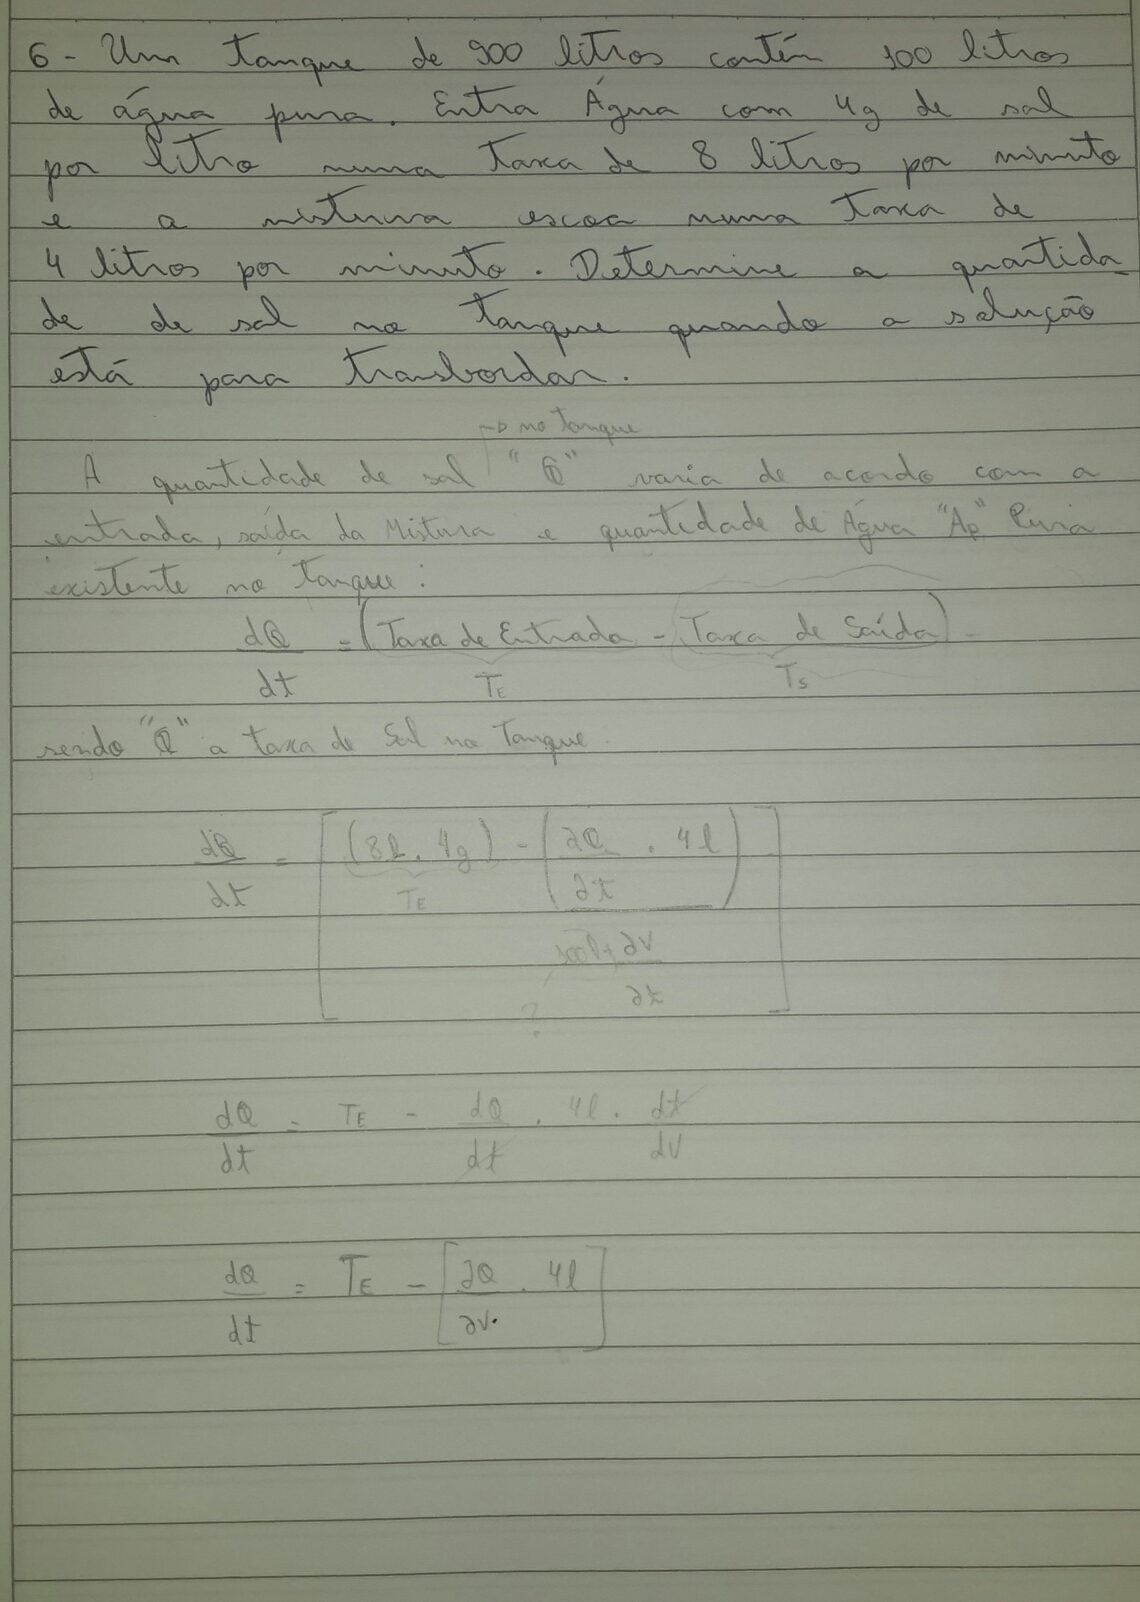 6 - Um tanque de 900 litros contén 100 litros
de água pura. Entra Água com 4g de sal
por litro numa taxa de 8 litros por minuto
e a mistura escoa numa taxa de
4 litros por minuto. Determine a quantida_
de de sal no tanque quando a solução
está para transbordar.
→ no tanque
A quantidade de sal "Q" varia de acordo com a
entrada, saída da Mistura e quantidade de Água "Ap" Pura
existente no tanque:
dQ/dt = (Taxa de Entrada - Taxa de Saída)
TE TS
sendo "Q" a taxa de Sal no Tanque.
dQ/dt = [(8l . 4g) - (∂Q/∂t . 4l)
TE
100l + ∂V/∂t]
?
dQ/dt = TE - dQ/dt . 4l . dt/dV
dQ/dt = TE - [∂Q/∂V . 4l]